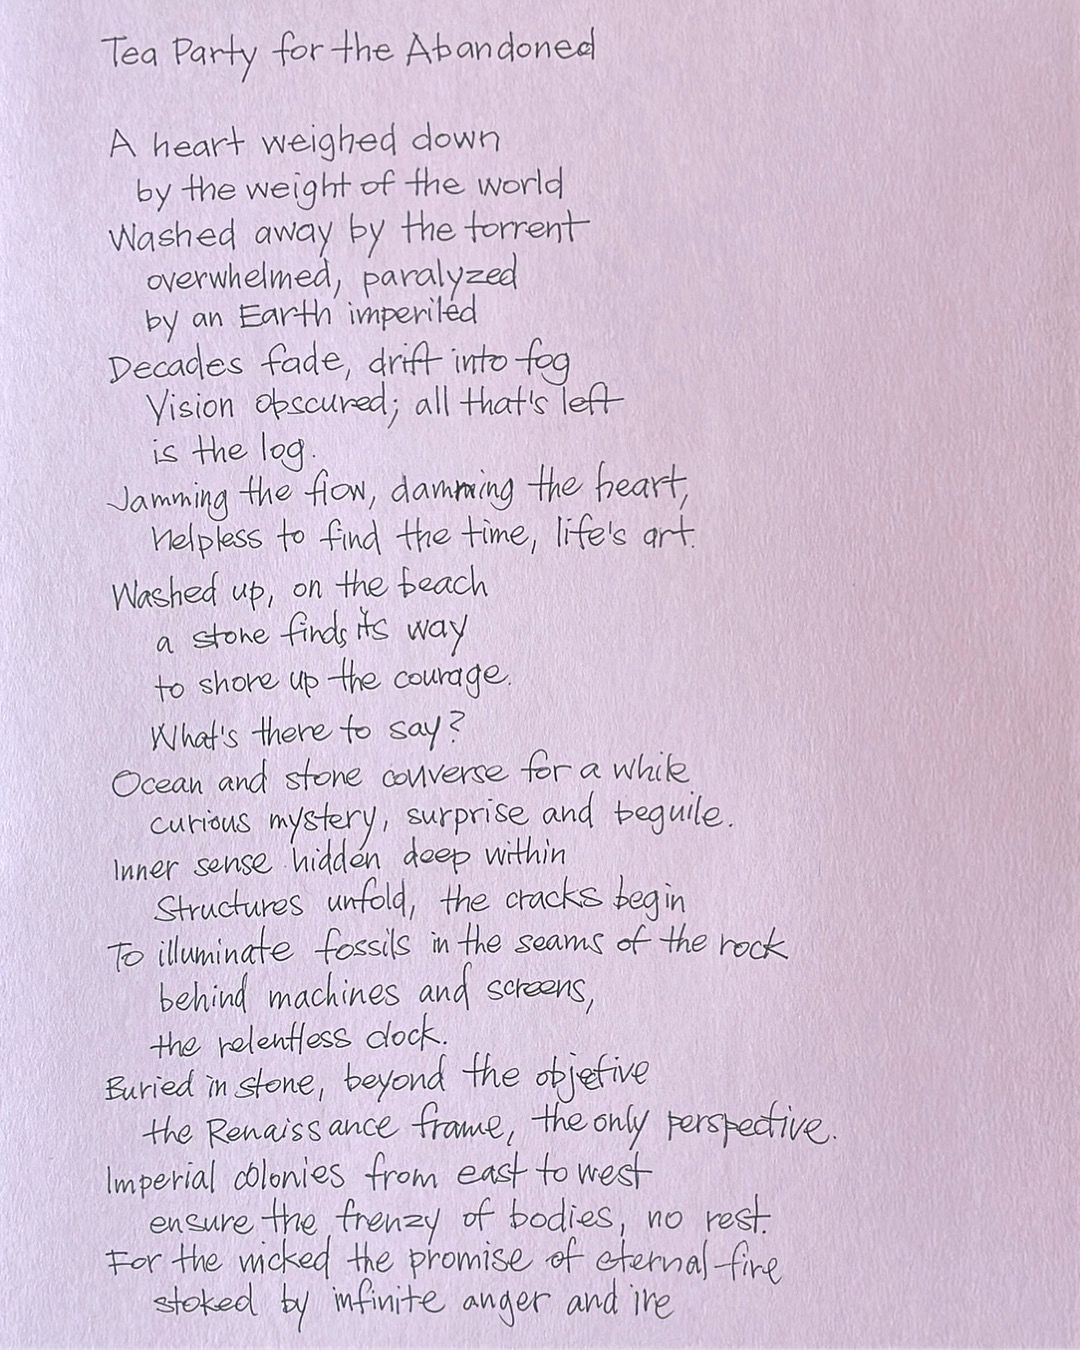 Tea Party for the Abandoned
A heart weighed down
by the weight of the world
Washed away by the torrent
overwhelmed, paralyzed
by an Earth imperiled
Decades fade, drift into fog
Vision obscured; all that's left
is the log.
Jamming the flow, damming the heart,
helpless to find the time, life's art.
Washed up, on the beach
a stone finds its way
to shore up the courage.
What's there to say?
Ocean and stone converse for a while
curious mystery, surprise and beguile.
Inner sense hidden deep within
Structures unfold, the cracks begin
To illuminate fossils in the seams of the rock
behind machines and screens,
the relentless clock.
Buried in stone, beyond the objetive
the Renaissance frame, the only perspective.
Imperial colonies from east to west
ensure the frenzy of bodies, no rest.
For the wicked the promise of eternal fire
stoked by infinite anger and ire